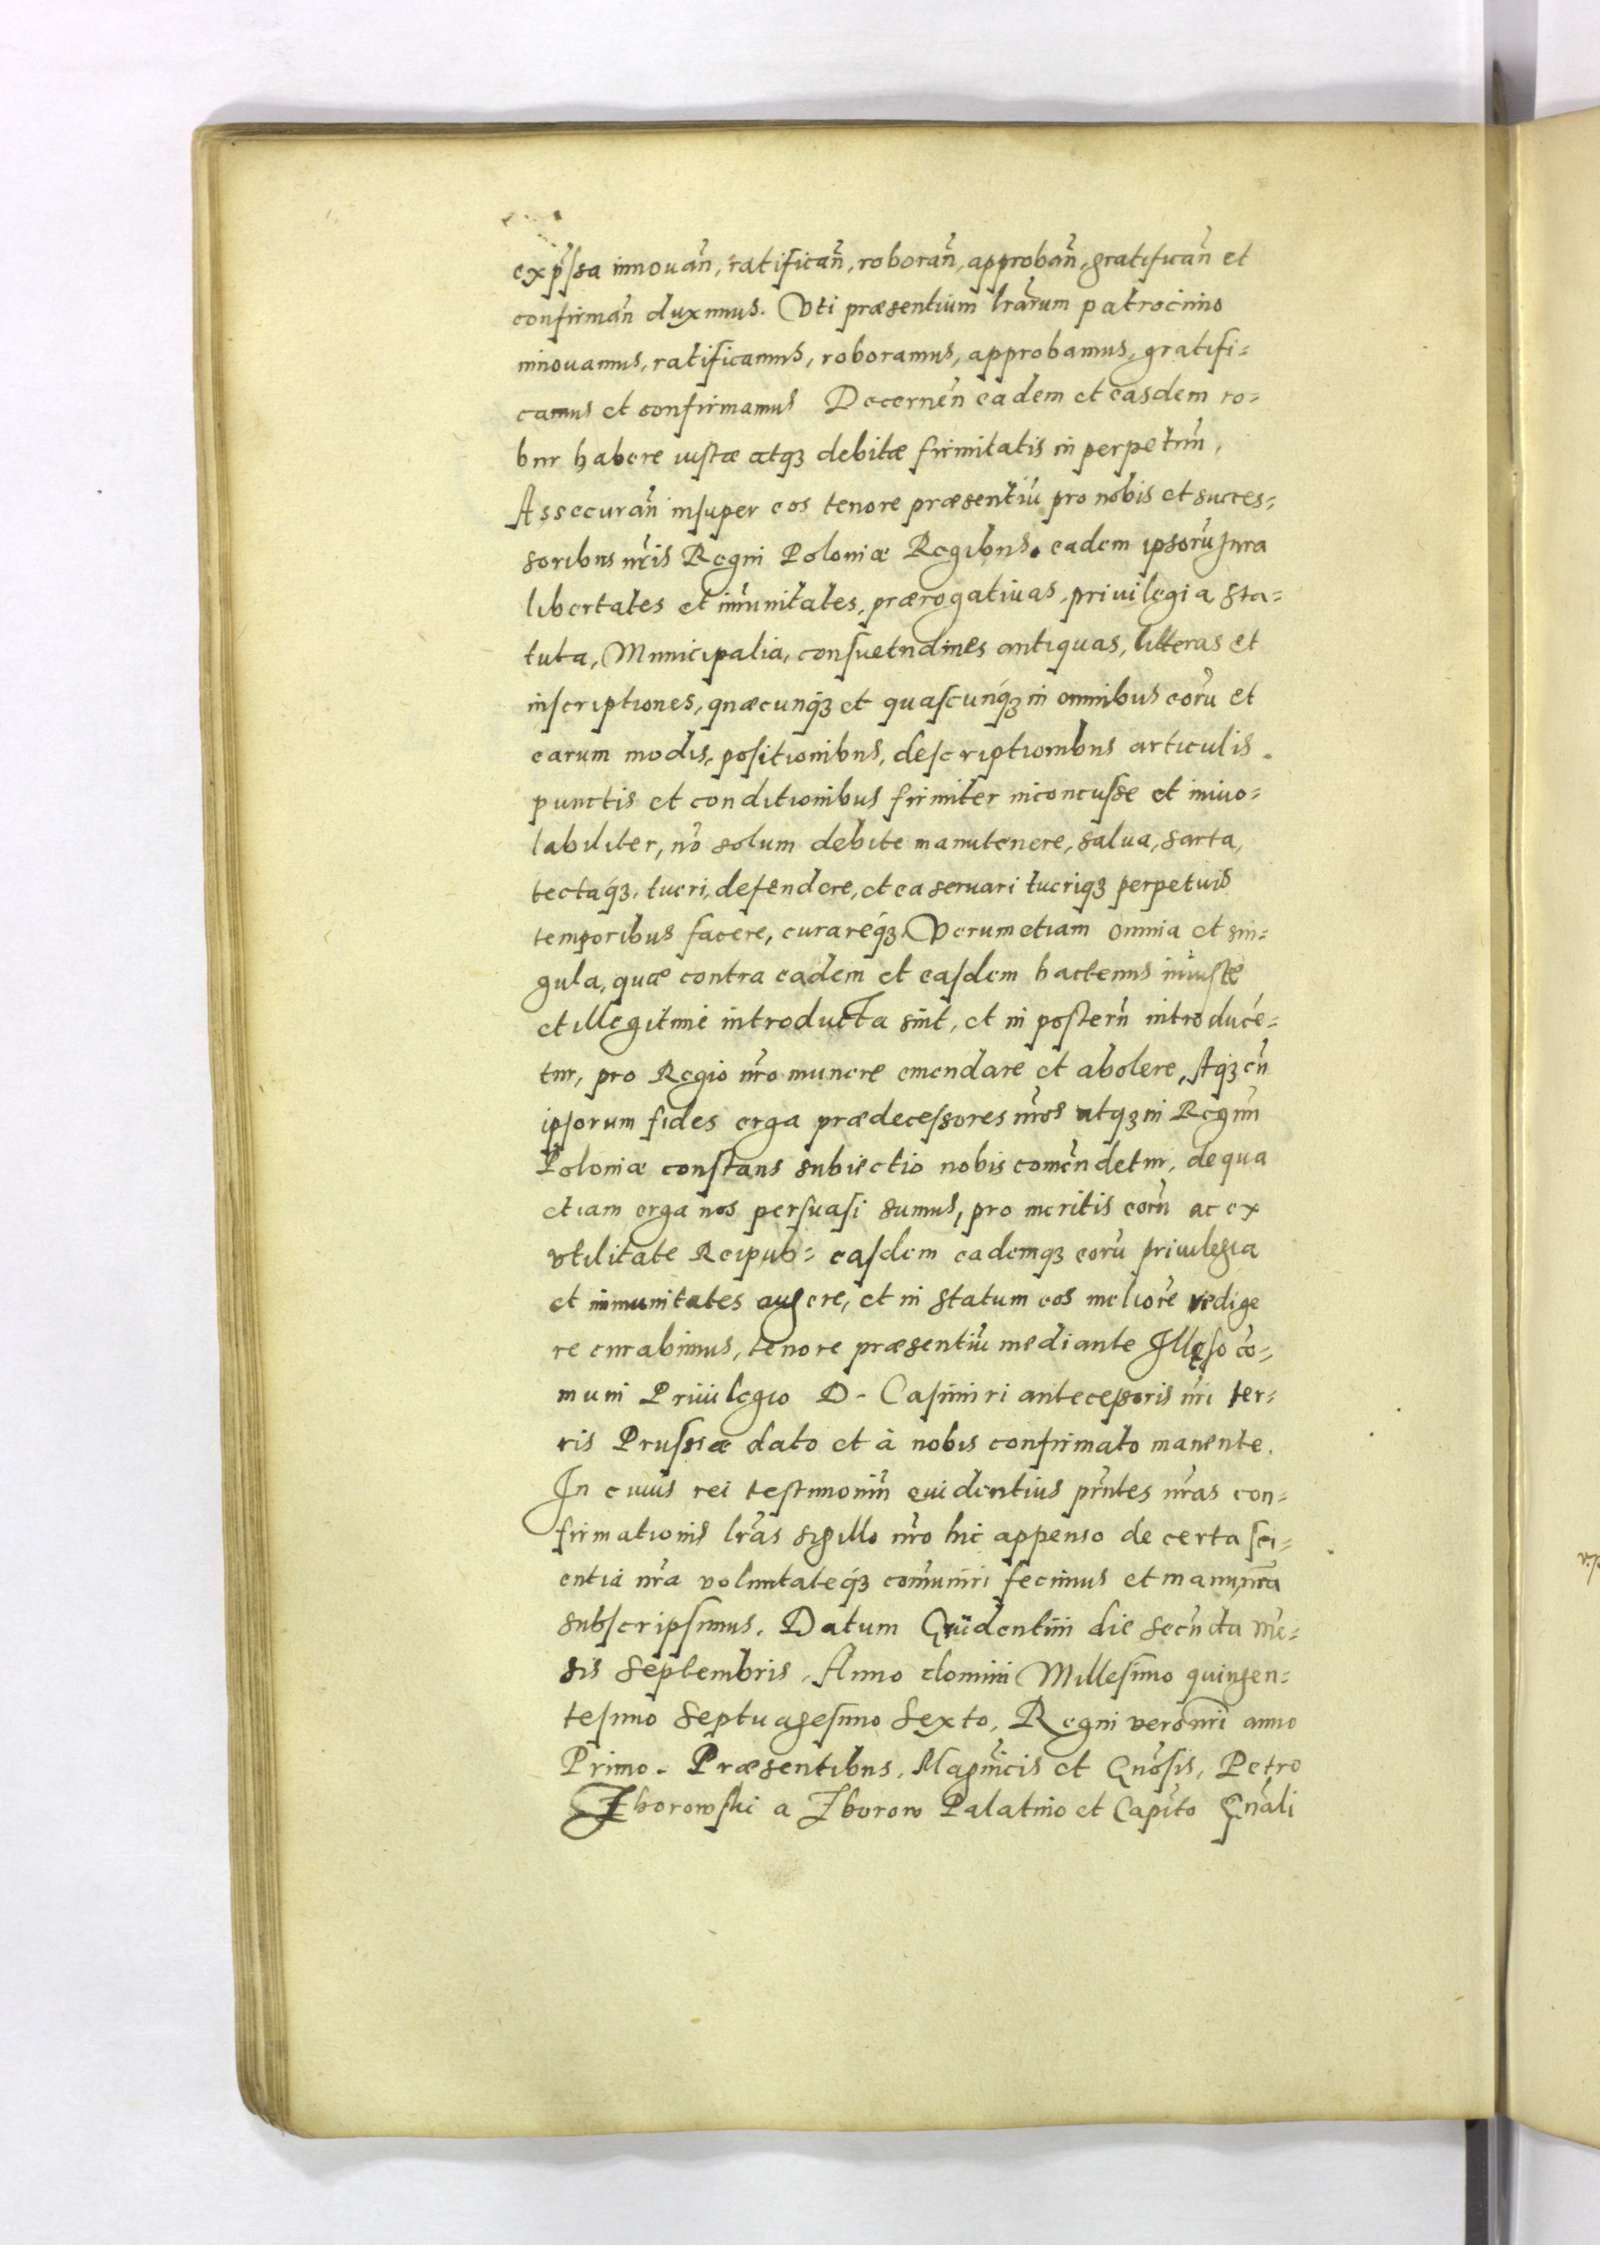 exp̃ssa innouan̄, ratifican̄, roboran̄, approban̄, gratifican̄ et
confirman̄ duximus. Vti præsentium lr̄arum patrocinio
innouamus, ratificamus, roboramus, approbamus, gratifi=
camus et confirmamus Decernen̄ eadem et easdem ro=
bur habere iustæ atqꝫ debitæ firmitatis in perpetuū,
Assecuran̄ insuper eos tenore præsentiū pro nobis et succes=
soribus nr̄is Regni Poloniæ Regibus. eadem ipsorū Jura
libertates et im̄unitates, prærogatiuas, priuilegia sta=
tuta, Municipalia, consuetudines antiquas, litteras et
inscriptiones, quæcunqꝫ et quascunqꝫ in omnibus eorū et
earum modis, positionibus, descriptionibus articulis
punctis et conditionibus firmiter inconcusse et inuio=
labiliter, nō solum debite manutenere, salua, sarta,
tectaqꝫ, tueri, defendere, et ea seruari tueriqꝫ perpetuis
temporibus facere, curareqꝫ. Verum etiam omnia et sin=
gula, quæ contra eadem et easdem hactenus iniuste
et illegitimè introducta sint, et in posterū introducē=
tur, pro Regio nr̄o munere emendare et abolere, Aqꝫ cū
ipsorum fides erga prædecessores nr̄os atqꝫ in Regnū
Poloniæ constans subiectio nobis comēndetur, de qua
etiam erga nos persuasi sumus, pro meritis eorū ac ex
vtilitate Reipub= easdem eademqꝫ eorū priuilegia
et immunitates augere, et in statum eos meliorē redige
re curabimus, tenore præsentiū mediante Illęso cō=
muni Priuilegio D. Casimiri antecessoris nr̄i ter=
ris Prussiæ dato et à nobis confirmato manente.
In cuius rei testimoniū euidentius pr̄ntes nr̄as con=
firmationis lr̄as sigillo nr̄o hic appenso de certa sci=
entia nr̄a voluntateqꝫ com̄uniri fecimus et manu nr̄a
subscripsimus. Datum Grudentini die secūda mē=
sis Septembris, Anno domini Millesimo quingen=
tesimo Septuagesimo Sexto, Regni vero nr̄i anno
Primo. Præsentibus, Magn̄icis et Gn̄osis, Petro
Zborowski a Zborow Palatino et Capitō Gn̄ali